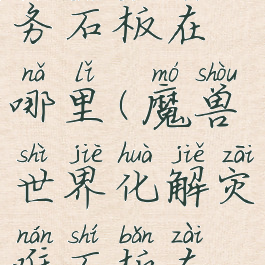 务石板在
nǎ lǐ mó shòu
哪里(魔兽
shì jiē huà jiě zāi
世界化解灾
nán shí bǎn zài
难石板在